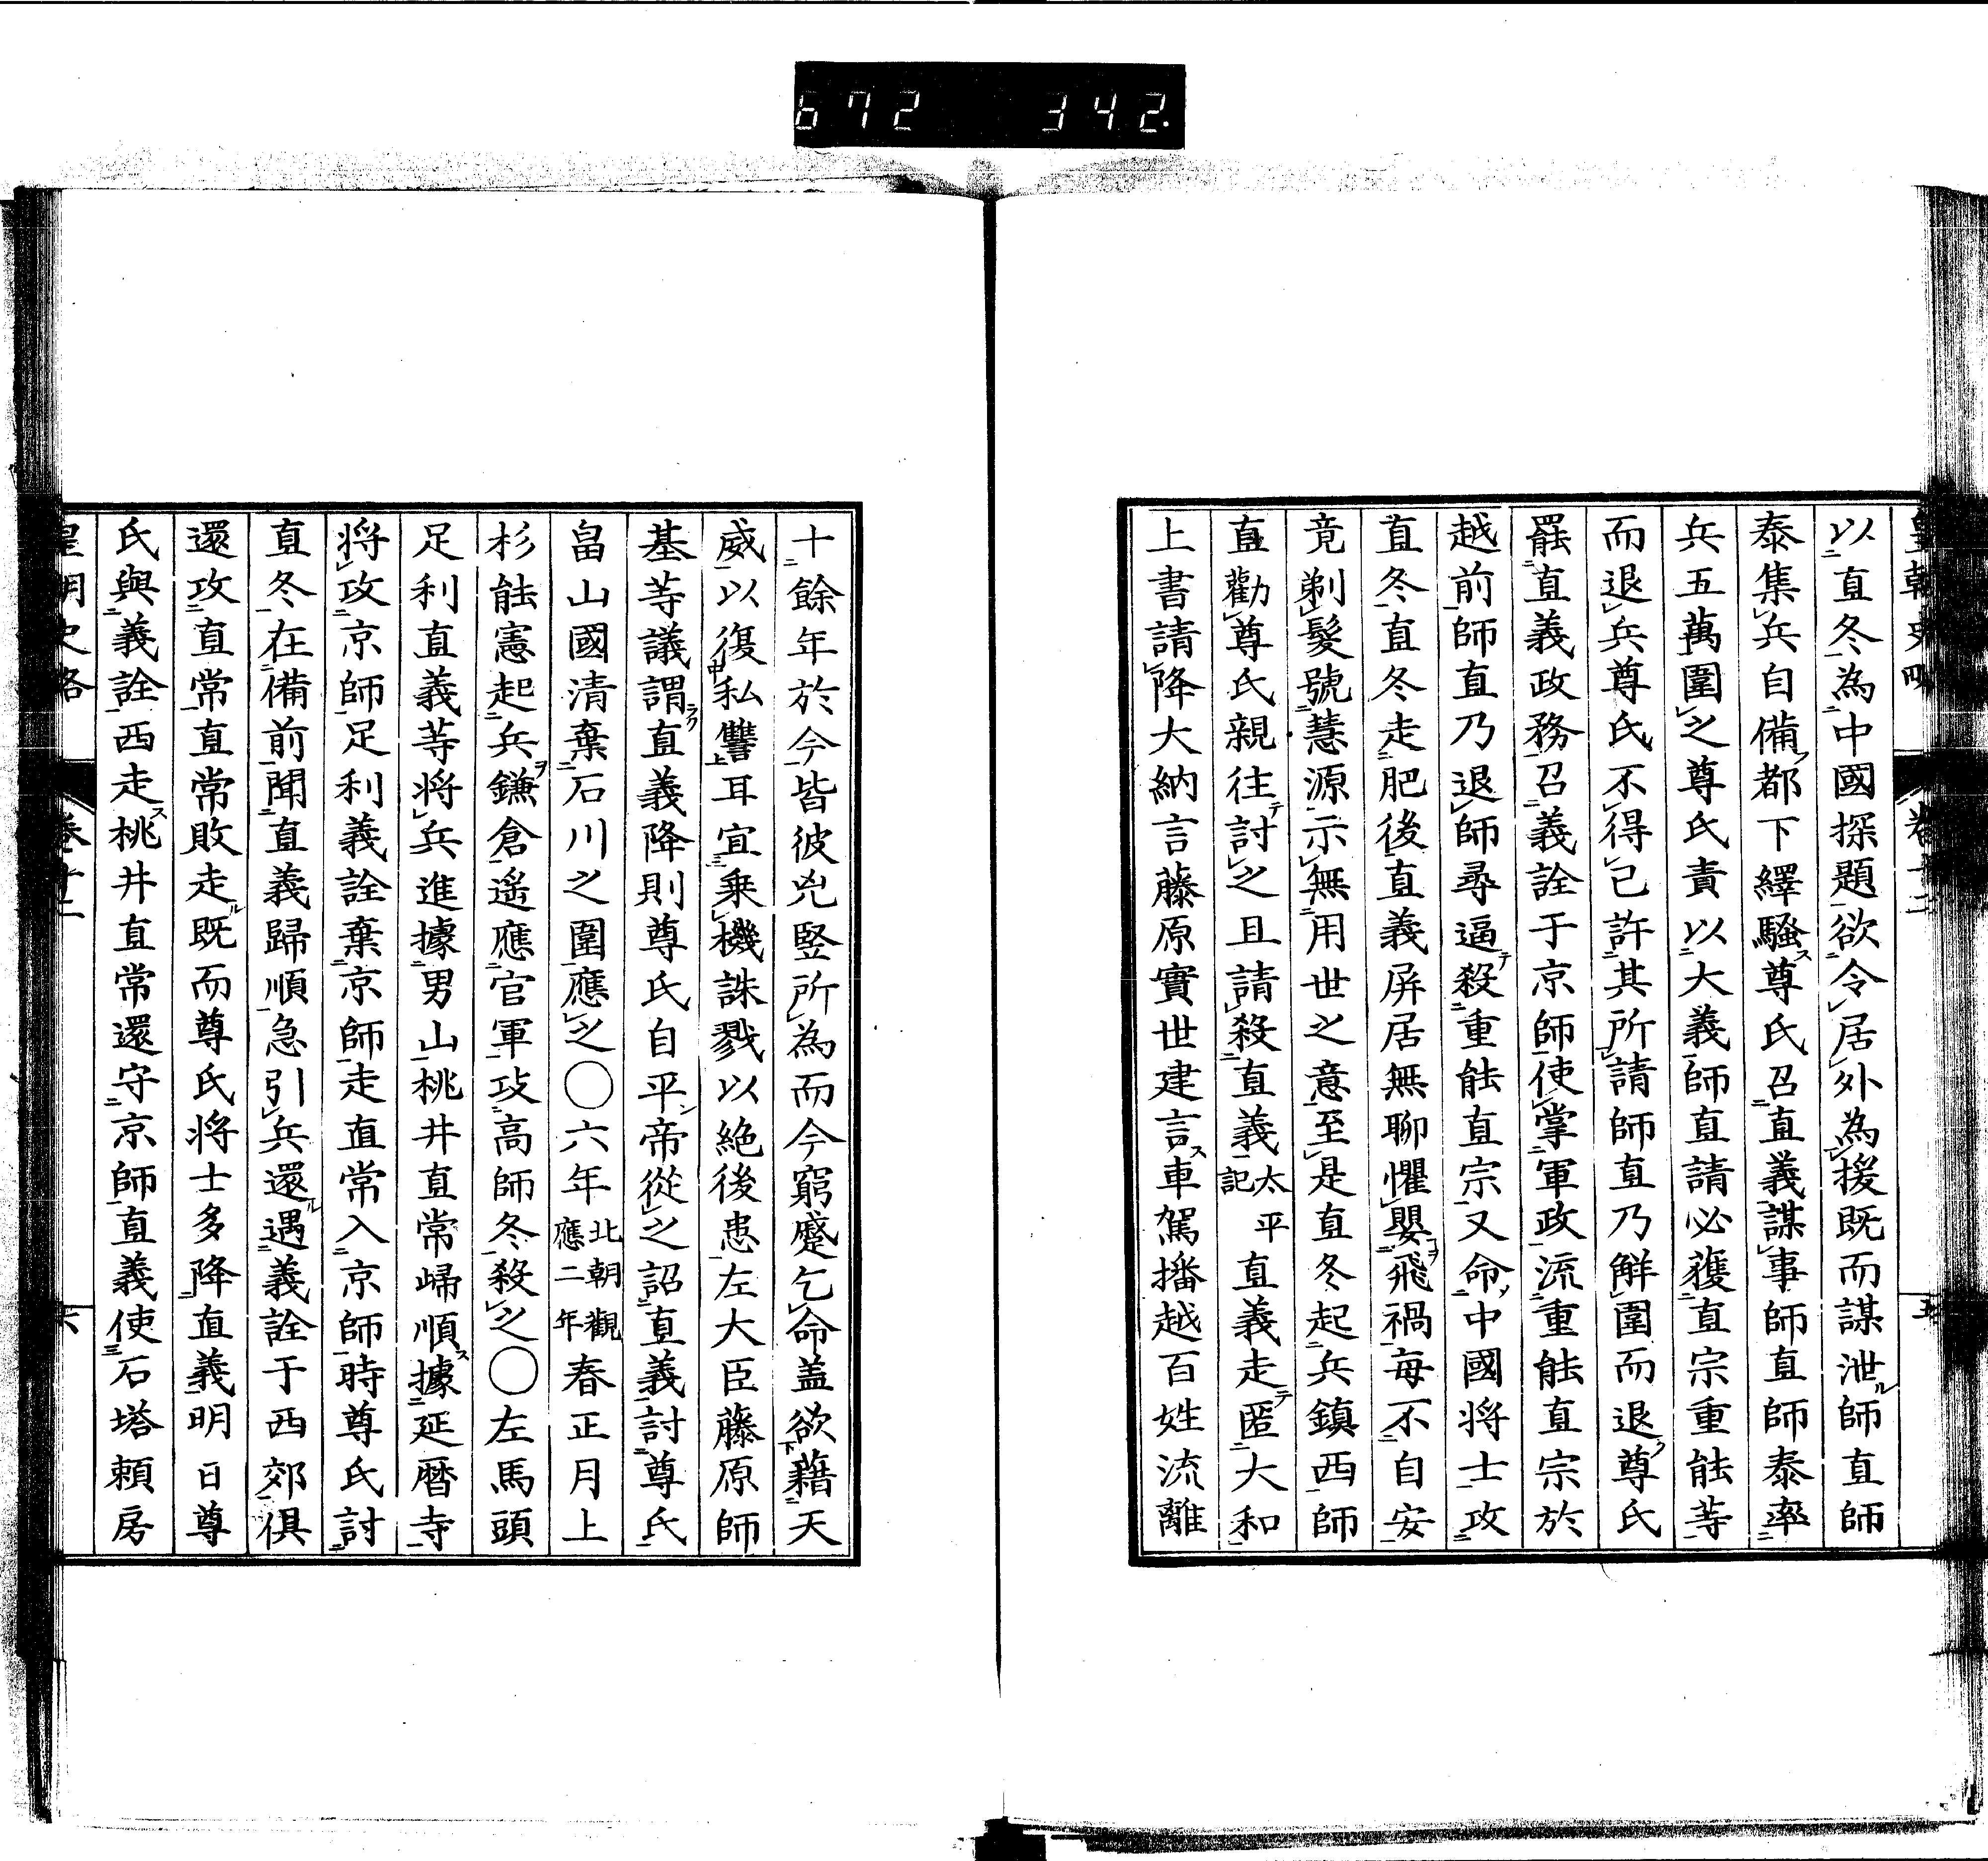 672 342.
以直冬為中國探題欲令居外為援既而謀泄師直師
泰集兵自備都下繹騷尊氏召直義謀事師直師泰率
兵五萬圍之尊氏責以大義師直請必獲直宗重能等
而退兵尊氏不得已許其所請師直乃解圍而退尊氏
罷直義政務召義詮于京師使掌軍政流重能直宗於
越前師直乃退師尋逼殺重能直宗又命中國将士攻
直冬直冬走肥後直義屏居無聊懼嬰飛禍每不自安
竟剃髮號慧源示無用世之意至是直冬起兵鎮西師
直勸尊氏親往討之且請殺直義太平記直義走匿大和
上書請降大納言藤原實世建言車駕播越百姓流離
十餘年於今皆彼兇竪所為而今窮蹙乞命盖欲藉天
威以復私讐耳宜乗機誅戮以絶後患左大臣藤原師
基等議謂直義降則尊氏自平帝從之詔直義討尊氏
畠山國清棄石川之圍應之〇六年北朝觀應二年春正月上
杉能憲起兵鎌倉遥應官軍攻高師冬殺之〇左馬頭
足利直義等将兵進據男山桃井直常歸順據延曆寺
将攻京師足利義詮棄京師走直常入京師時尊氏討
直冬在備前聞直義歸順急引兵還遇義詮于西郊俱
還攻直常直常敗走既而尊氏将士多降直義明日尊
氏與義詮西走桃井直常還守京師直義使石塔頼房